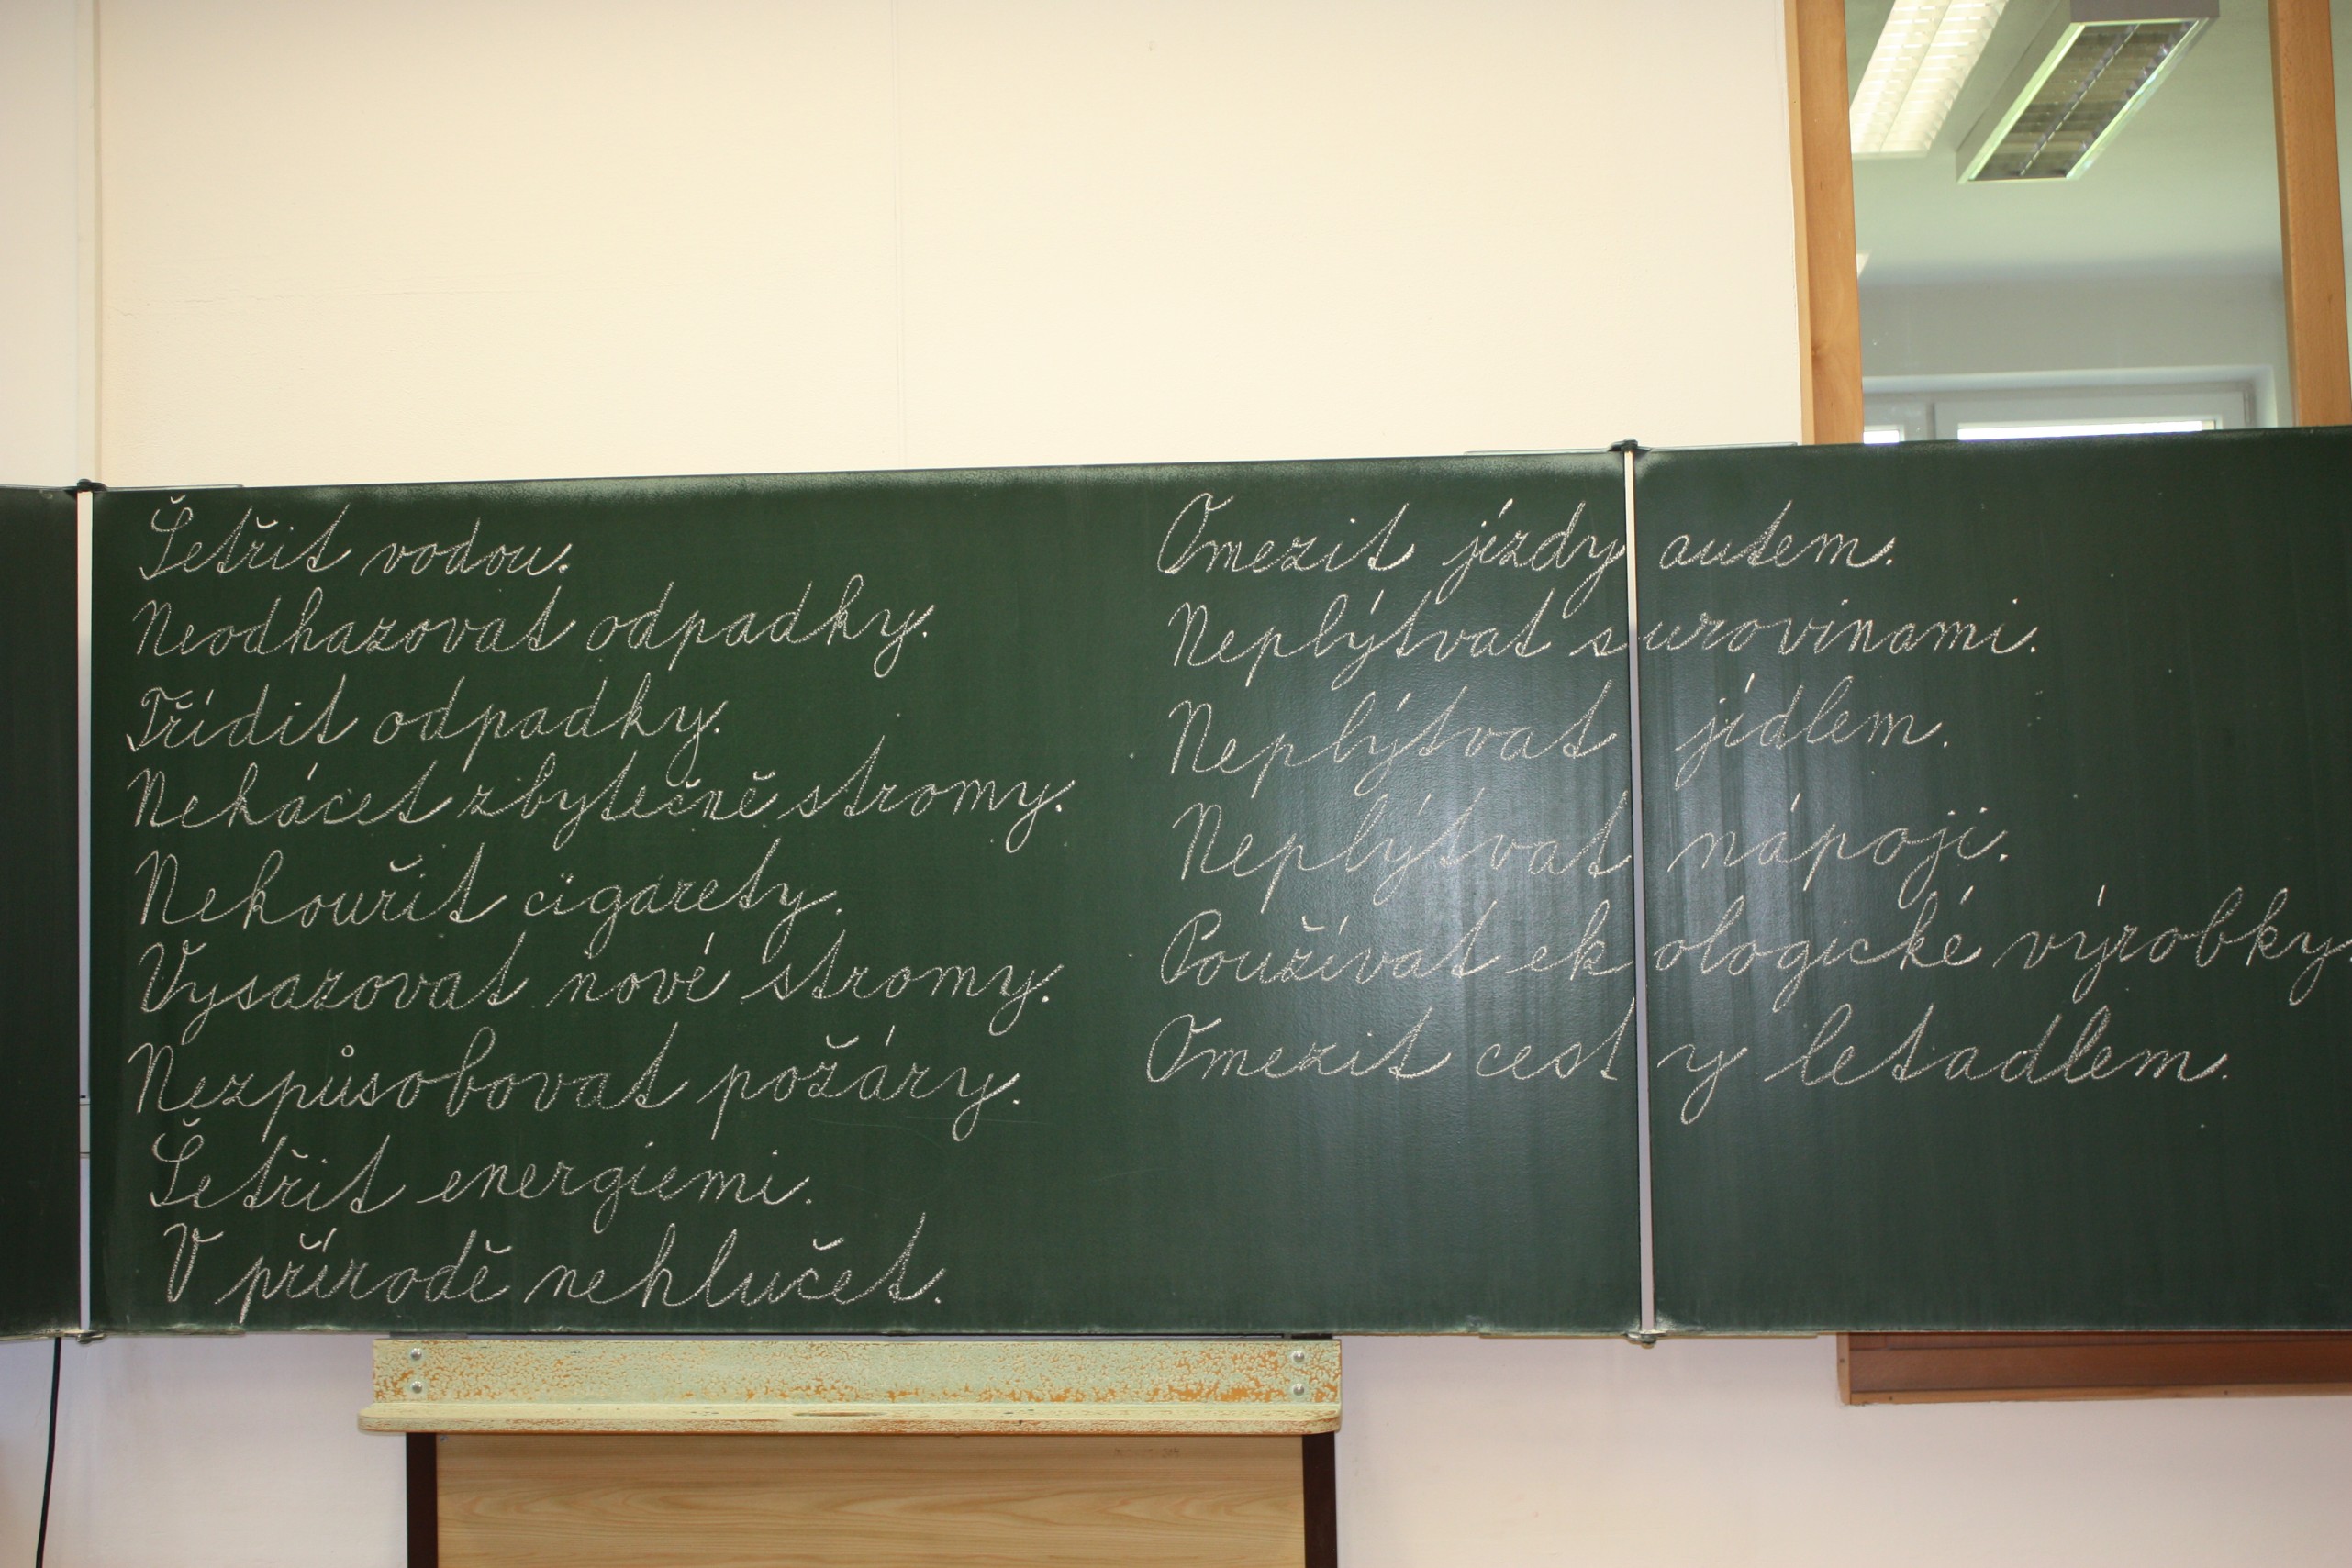 Šetřit vodou.
Neodhazovat odpadky.
Třídit odpadky.
Nekácet zbytečně stromy.
Nekouřit cigarety.
Vysazovat nové stromy.
Nezpůsobovat požáry.
Šetřit energiemi.
V přírodě nehlučet.
Omezit jízdy autem.
Neplýtvat surovinami.
Neplýtvat jídlem.
Neplýtvat nápoji.
Používat ekologické výrobky.
Omezit cesty letadlem.